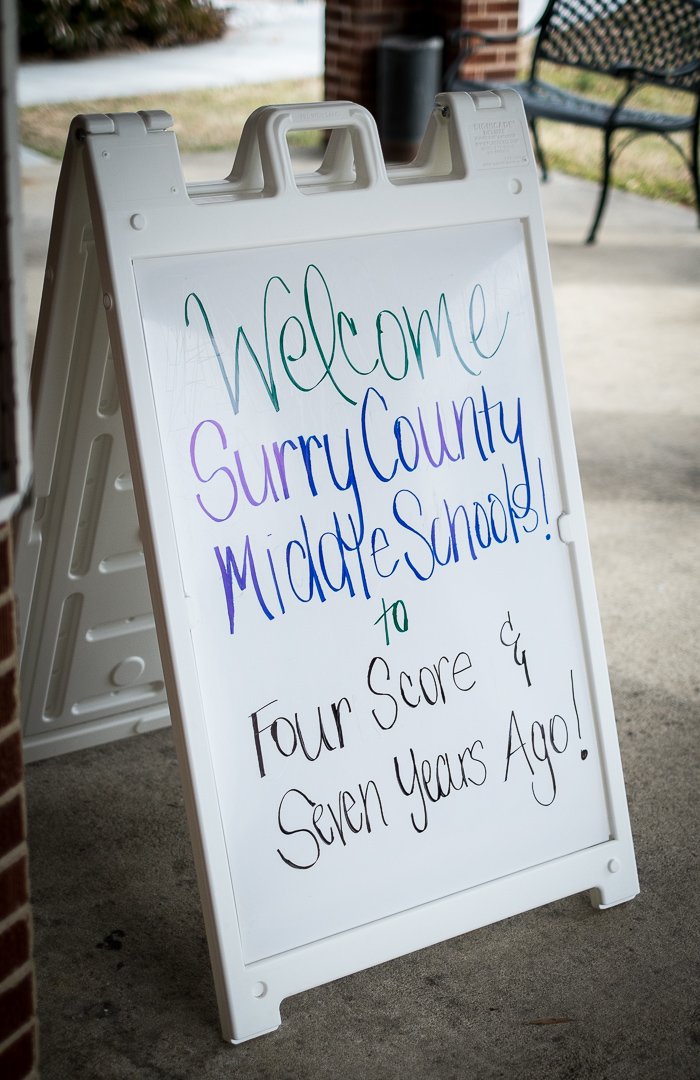 Welcome
Surry County
Middle Schools!
to
Four Score &
Seven Years Ago!